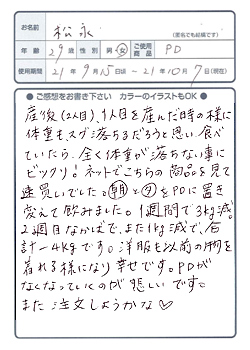 お名前 松永
(匿名でも結構です)
年齢 29歳 性別 男・女 ご使用商品 PD
使用期間 21年9月15日〜21年10月7日(現在)
●ご感想をお書き下さい カラーのイラストもOK●
産後(2人目)、1人目を産んだ時の様に
体重もスグ落ちるだろうと思い、食べ
ていたら、全く体重が落ちない事に
ビックリ!ネットでこちらの商品を見て
速買いでした。朝と夕をPDに置き
変えて飲みました。1週間で3kg減。
2週目なかばで、また1kg減で、合
計-4kgです。洋服も以前の物を
着れる様になり幸せです。PDが
なくなっていくのが悲しいです。
また注文しようかな♡